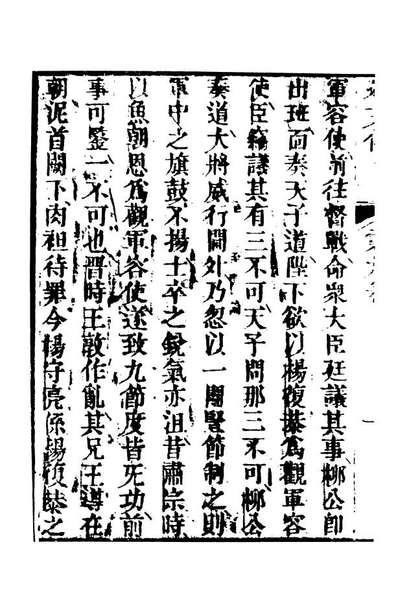 軍容使前往督戰命衆大臣廷議其事柳公卽
出班面奏天子道陛下欲以楊復恭爲觀軍容
使臣竊議其有三不可天子問那三不可柳公
奏道大將威行閫外乃忽以一閹豎節制之則
軍中之旗鼓不揚士卒之銳氣亦沮昔肅宗時
以魚朝恩爲觀軍容使遂致九節度皆无功前
事可鑒一不可也晋時王敦作亂其兄王導在
朝泥首闕下肉袒待罪今楊守亮係楊復恭之